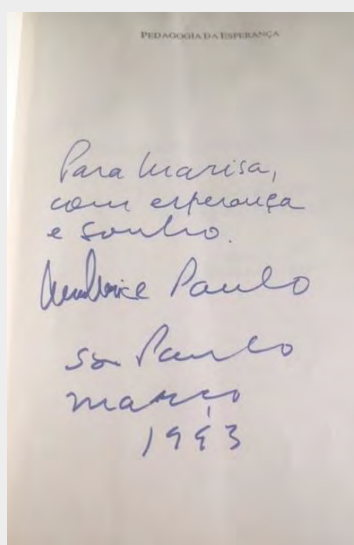 PEDAGOGIA DA ESPERANÇA
Para Marisa,
com esperança
e sonho.
Paulo
São Paulo
março
1993